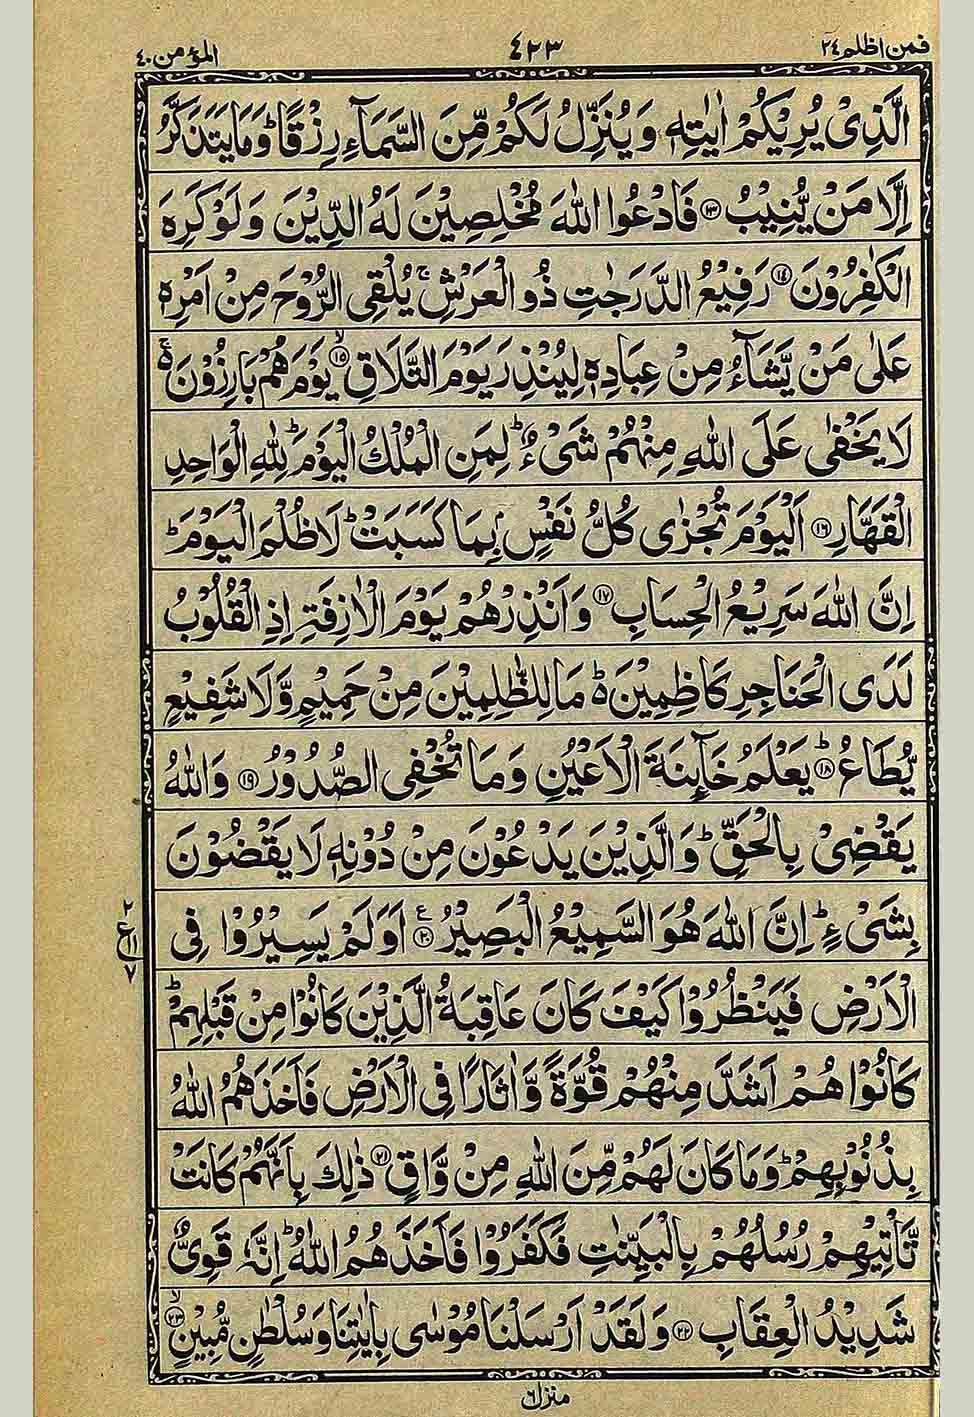 فمن اظلم ٢٤
٤٢٣
المؤمن ٤٠
الَّذِىْ يُرِيْكُمْ اٰيٰتِهٖ وَيُنَزِّلُ لَكُمْ مِّنَ السَّمَآءِ رِزْقًا ؕ وَمَا يَتَذَكَّرُ
اِلَّا مَنْ يُّنِيْبُ ﴿١٣﴾ فَادْعُوا اللّٰهَ مُخْلِصِيْنَ لَهُ الدِّيْنَ وَلَوْ كَرِهَ
الْكٰفِرُوْنَ ﴿١٤﴾ رَفِيْعُ الدَّرَجٰتِ ذُو الْعَرْشِ ۚ يُلْقِى الرُّوْحَ مِنْ اَمْرِهٖ
عَلٰى مَنْ يَّشَآءُ مِنْ عِبَادِهٖ لِيُنْذِرَ يَوْمَ التَّلَاقِ ﴿١٥﴾ ۙ يَوْمَ هُمْ بَارِزُوْنَ ۚ
لَا يَخْفٰى عَلَى اللّٰهِ مِنْهُمْ شَىْءٌ ؕ لِمَنِ الْمُلْكُ الْيَوْمَ ؕ لِلّٰهِ الْوَاحِدِ
الْقَهَّارِ ﴿١٦﴾ اَلْيَوْمَ تُجْزٰى كُلُّ نَفْسٍۭ بِمَا كَسَبَتْ ؕ لَا ظُلْمَ الْيَوْمَ ؕ
اِنَّ اللّٰهَ سَرِيْعُ الْحِسَابِ ﴿١٧﴾ وَاَنْذِرْهُمْ يَوْمَ الْاٰزِفَةِ اِذِ الْقُلُوْبُ
لَدَى الْحَنَاجِرِ كَاظِمِيْنَ ۬ؕ مَا لِلظّٰلِمِيْنَ مِنْ حَمِيْمٍ وَّلَا شَفِيْعٍ
يُّطَاعُ ﴿١٨﴾ؕ يَعْلَمُ خَآئِنَةَ الْاَعْيُنِ وَمَا تُخْفِى الصُّدُوْرُ ﴿١٩﴾ وَاللّٰهُ
يَقْضِىْ بِالْحَقِّ ؕ وَالَّذِيْنَ يَدْعُوْنَ مِنْ دُوْنِهٖ لَا يَقْضُوْنَ
بِشَىْءٍ ؕ اِنَّ اللّٰهَ هُوَ السَّمِيْعُ الْبَصِيْرُ ﴿٢٠﴾ ع اَوَلَمْ يَسِيْرُوْا فِى
٢ ع ١١ ٧
الْاَرْضِ فَيَنْظُرُوْا كَيْفَ كَانَ عَاقِبَةُ الَّذِيْنَ كَانُوْا مِنْ قَبْلِهِمْ ؕ
كَانُوْا هُمْ اَشَدَّ مِنْهُمْ قُوَّةً وَّاٰثَارًا فِى الْاَرْضِ فَاَخَذَهُمُ اللّٰهُ
بِذُنُوْبِهِمْ ؕ وَمَا كَانَ لَهُمْ مِّنَ اللّٰهِ مِنْ وَّاقٍ ﴿٢١﴾ ذٰلِكَ بِاَنَّهُمْ كَانَتْ
تَّاْتِيْهِمْ رُسُلُهُمْ بِالْبَيِّنٰتِ فَكَفَرُوْا فَاَخَذَهُمُ اللّٰهُ ؕ اِنَّهٗ قَوِىٌّ
شَدِيْدُ الْعِقَابِ ﴿٢٢﴾ وَلَقَدْ اَرْسَلْنَا مُوْسٰى بِاٰيٰتِنَا وَسُلْطٰنٍ مُّبِيْنٍ ﴿٢٣﴾ ۙ
منزل ٦